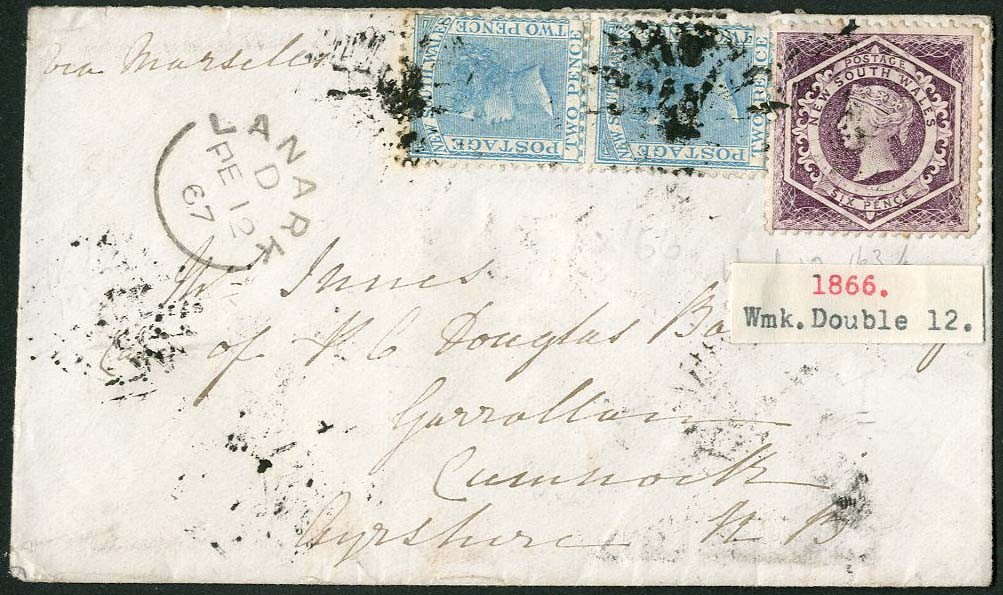 Via Marseilles
NEW SOUTH WALES
TWO PENCE
POSTAGE
TWO PENCE
NEW SOUTH WALES
TWO PENCE
POSTAGE
TWO PENCE
POSTAGE
NEW SOUTH WALES
SIX PENCE
LANARK
D
12
67
1866.
Wmk. Double 12.
Mrs Innes
of Douglas
Cumnock
Ayrshire N B